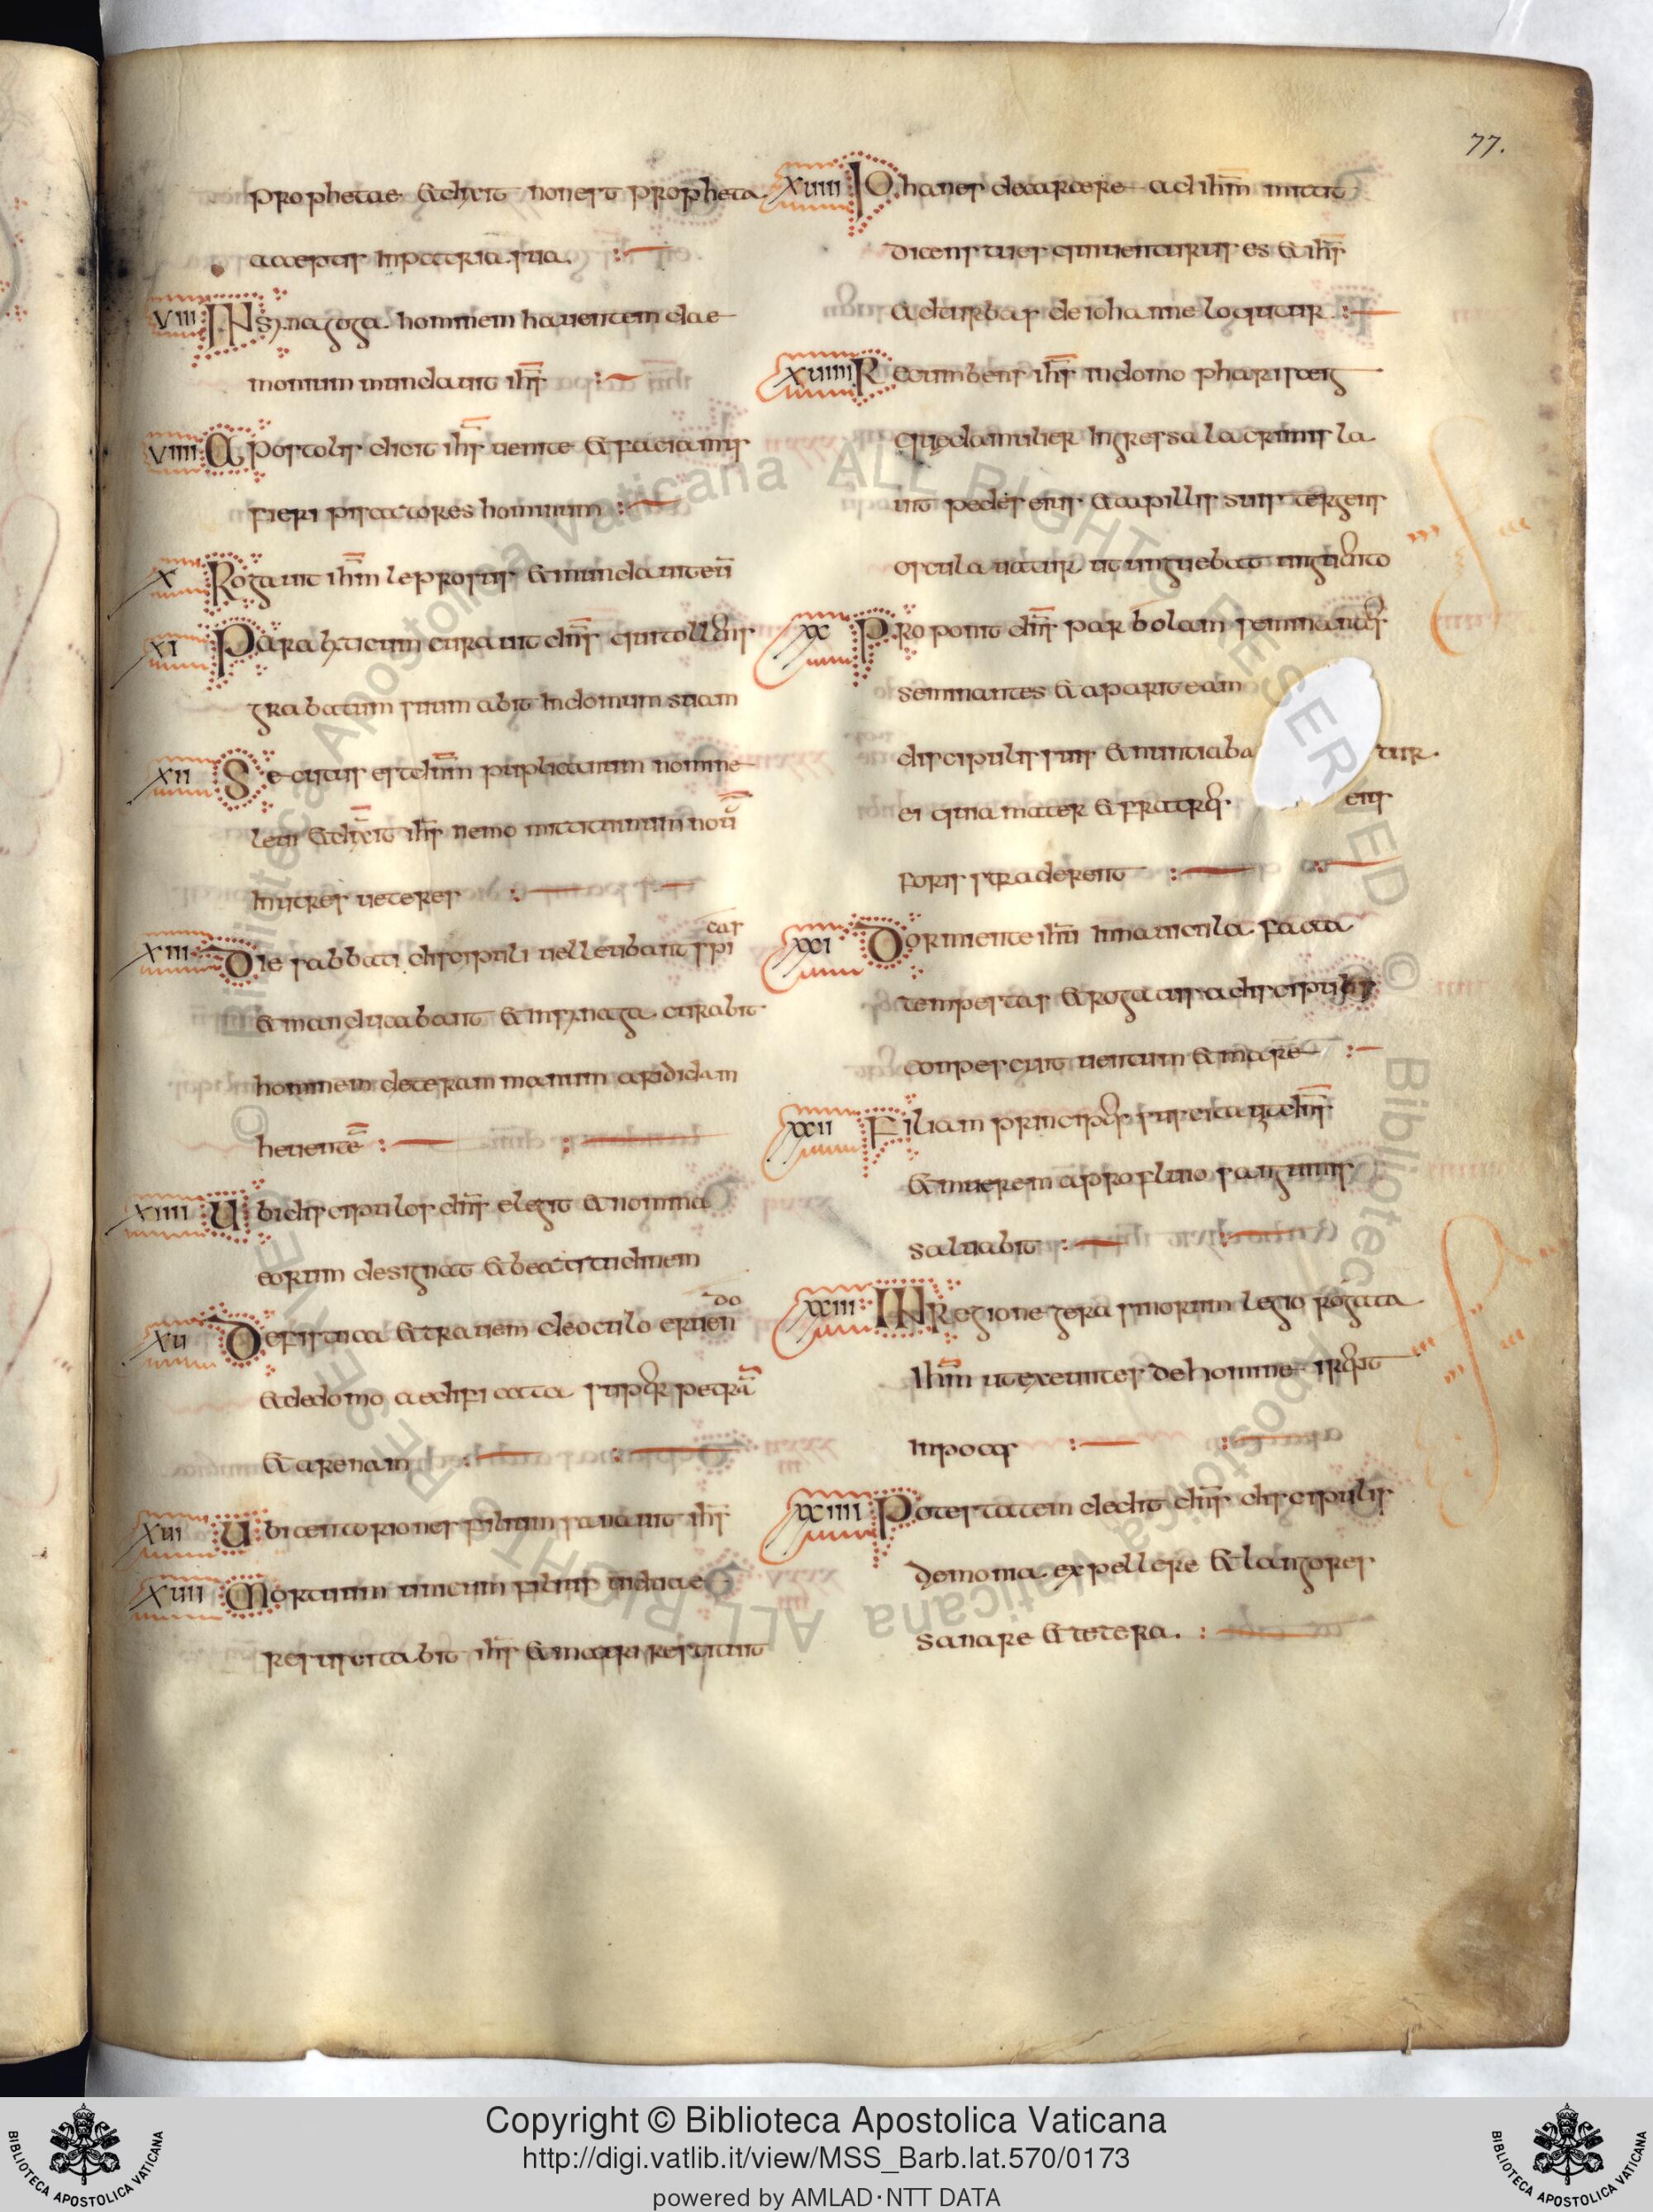 77.
prophetae &dixit nonest propheta
acceptus inpatria sua.
VIII INsynagoga hominem haventem dae
monium mundavit ihs̄
VIIII Apostolis dicit ihs̄ venite & faciamus
fieri piscatores hominum
X Rogavit ihm̄ leprosus &mundavit eū
XI Paralyticum curavit dn̄s qui tollens
grabatum suum abit indomum suam
XII Secutus est dn̄m puplicanum nomine
levi &dixit ihs̄ nemo mittit vinum novū
inutres veteres
XIII Die sabbati discipuli vellebant spi
cas
&manducabant &insynaga curabit
hominem deteram manum aridam
heventē
XIIII Ubi discipulos dn̄s elegit &nomina
eorum designat &beatitudinem
XV Defistuca &travem deoculo eruen
do
&dedomo aedificata super petrā
&arenam
XVI Ubi centoriones filium savavit ihs̄
XVII Mortuum unicum filius viduae
resuscitabit ihs̄ &matri restituit
XVIII Iohanes decarcere ad ihm̄ mittit
dicens tu es qui venturus es & ihs̄
adturbas deiohanne loquitur
XVIIII Recumbens ihs̄ indomo pharisaei
quedamulier ingressa lacrimis la
vit pedes eius &capillis suis tergens
osculavatur ut unguebat unguento
XX Proponit dn̄s parbolam seminantes
seminantes & aparit eam
discipulis suis &nuntiaba tur.
ei quia mater & fratres eius
foris straderent
XXI Dormiente ihū innavicula facta
tempestas &rogatus adiscipulis
conpescuit ventum &mare
XXII Filiam principes suscitavit dn̄s
&mulierem aprofluvio sanguinis
salvabit
XXIII INRegione gerasinorum legio rogata
ihm̄ ut exeuntes dehomine
inpocos
XXIIII Potestatem dedit dn̄s discipulis
demonia expellere &langores
sanare &cetera.
© Biblioteca Apostolica Vaticana ALL RIGHTS RESERVED
© Biblioteca Apostolica Vaticana ALL RIGHTS RESERVED
Copyright © Biblioteca Apostolica Vaticana
http://digi.vatlib.it/view/MSS_Barb.lat.570/0173
powered by AMLAD·NTT DATA
BIBLIOTECA APOSTOLICA VATICANA
BIBLIOTECA APOSTOLICA VATICANA